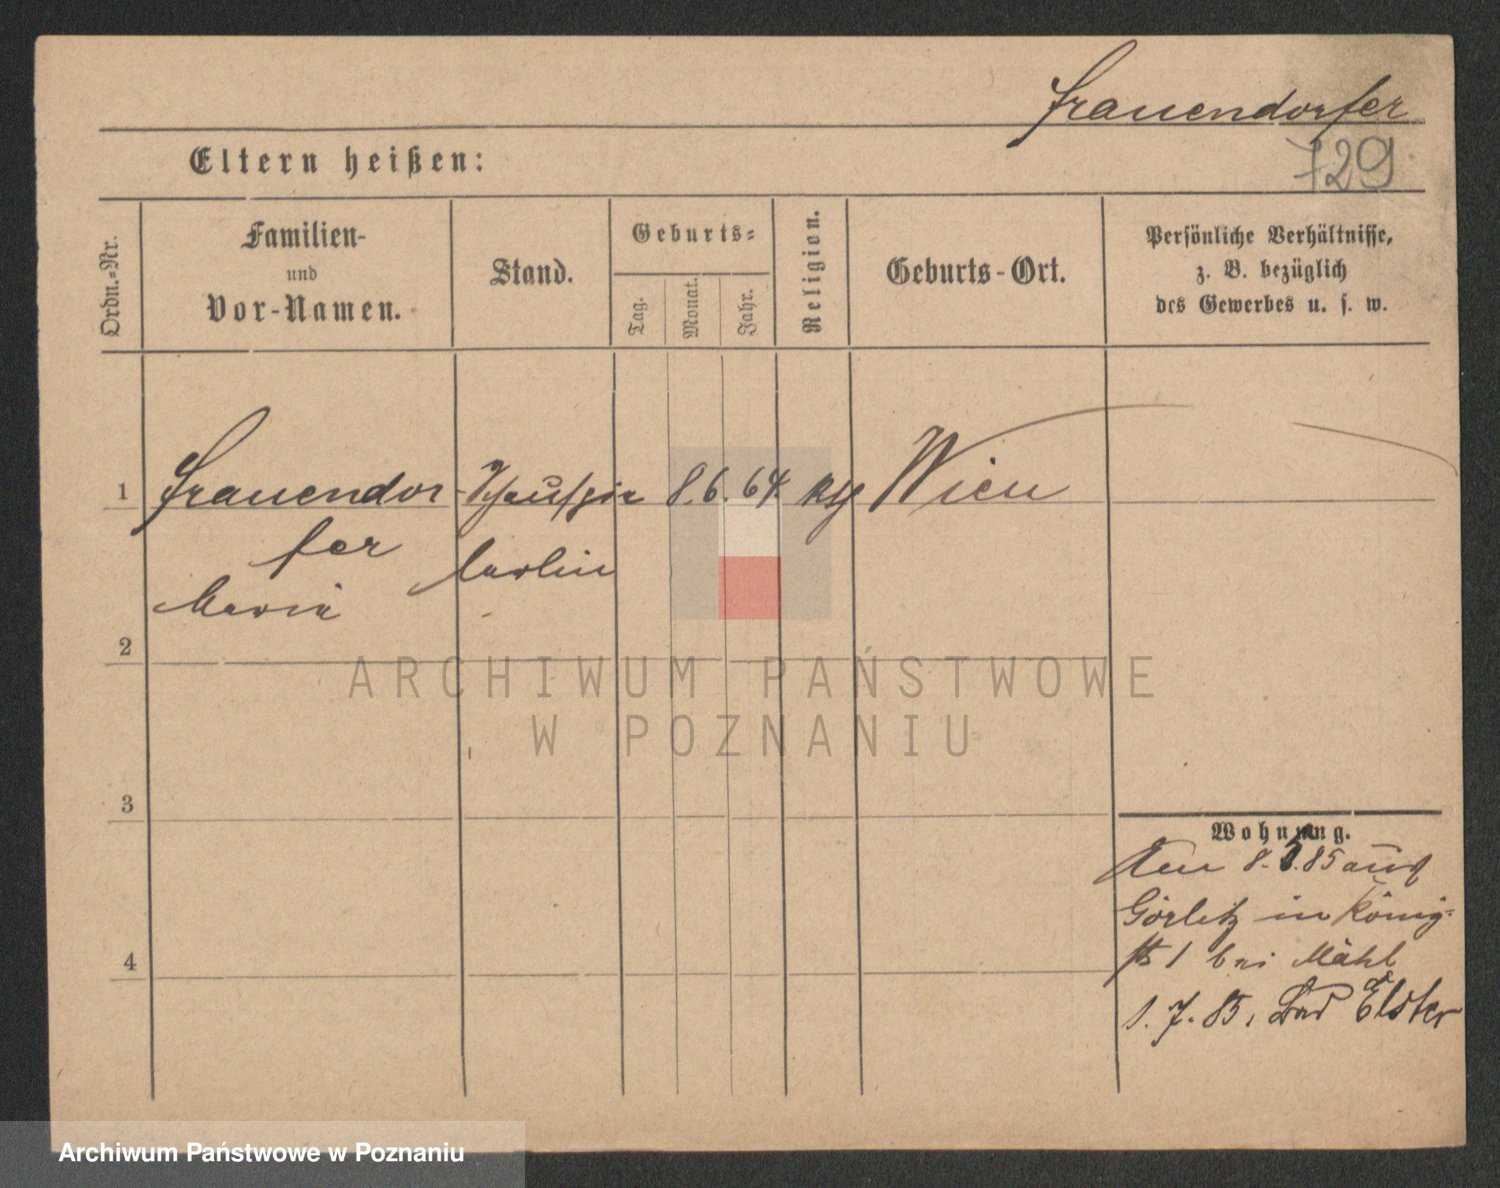 Frauendorfer
729
Eltern heißen:
Ordn.-Nr.
Familien-
und
Vor-Namen.
Stand.
Geburts-
Tag.
Monat.
Jahr.
Religion.
Geburts-Ort.
Persönliche Verhältnisse,
z. B. bezüglich
des Gewerbes u. s. w.
1 Frauendor Schauspie 8. 6. 64. Wien
fer lerlin
Maria
2
3
4
Wohnung.
8. 5. 85 aus
Görlitz in König-
1 bei Mähl
1. 7. 85. Bad Elster
ARCHIWUM PAŃSTWOWE
W POZNANIU
Archiwum Państwowe w Poznaniu